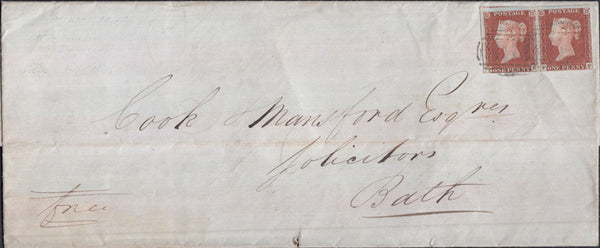 POSTAGE POSTAGE
ONE PENNY ONE PENNY
Cook & Mansford Esqres
Solicitors
Bath
free